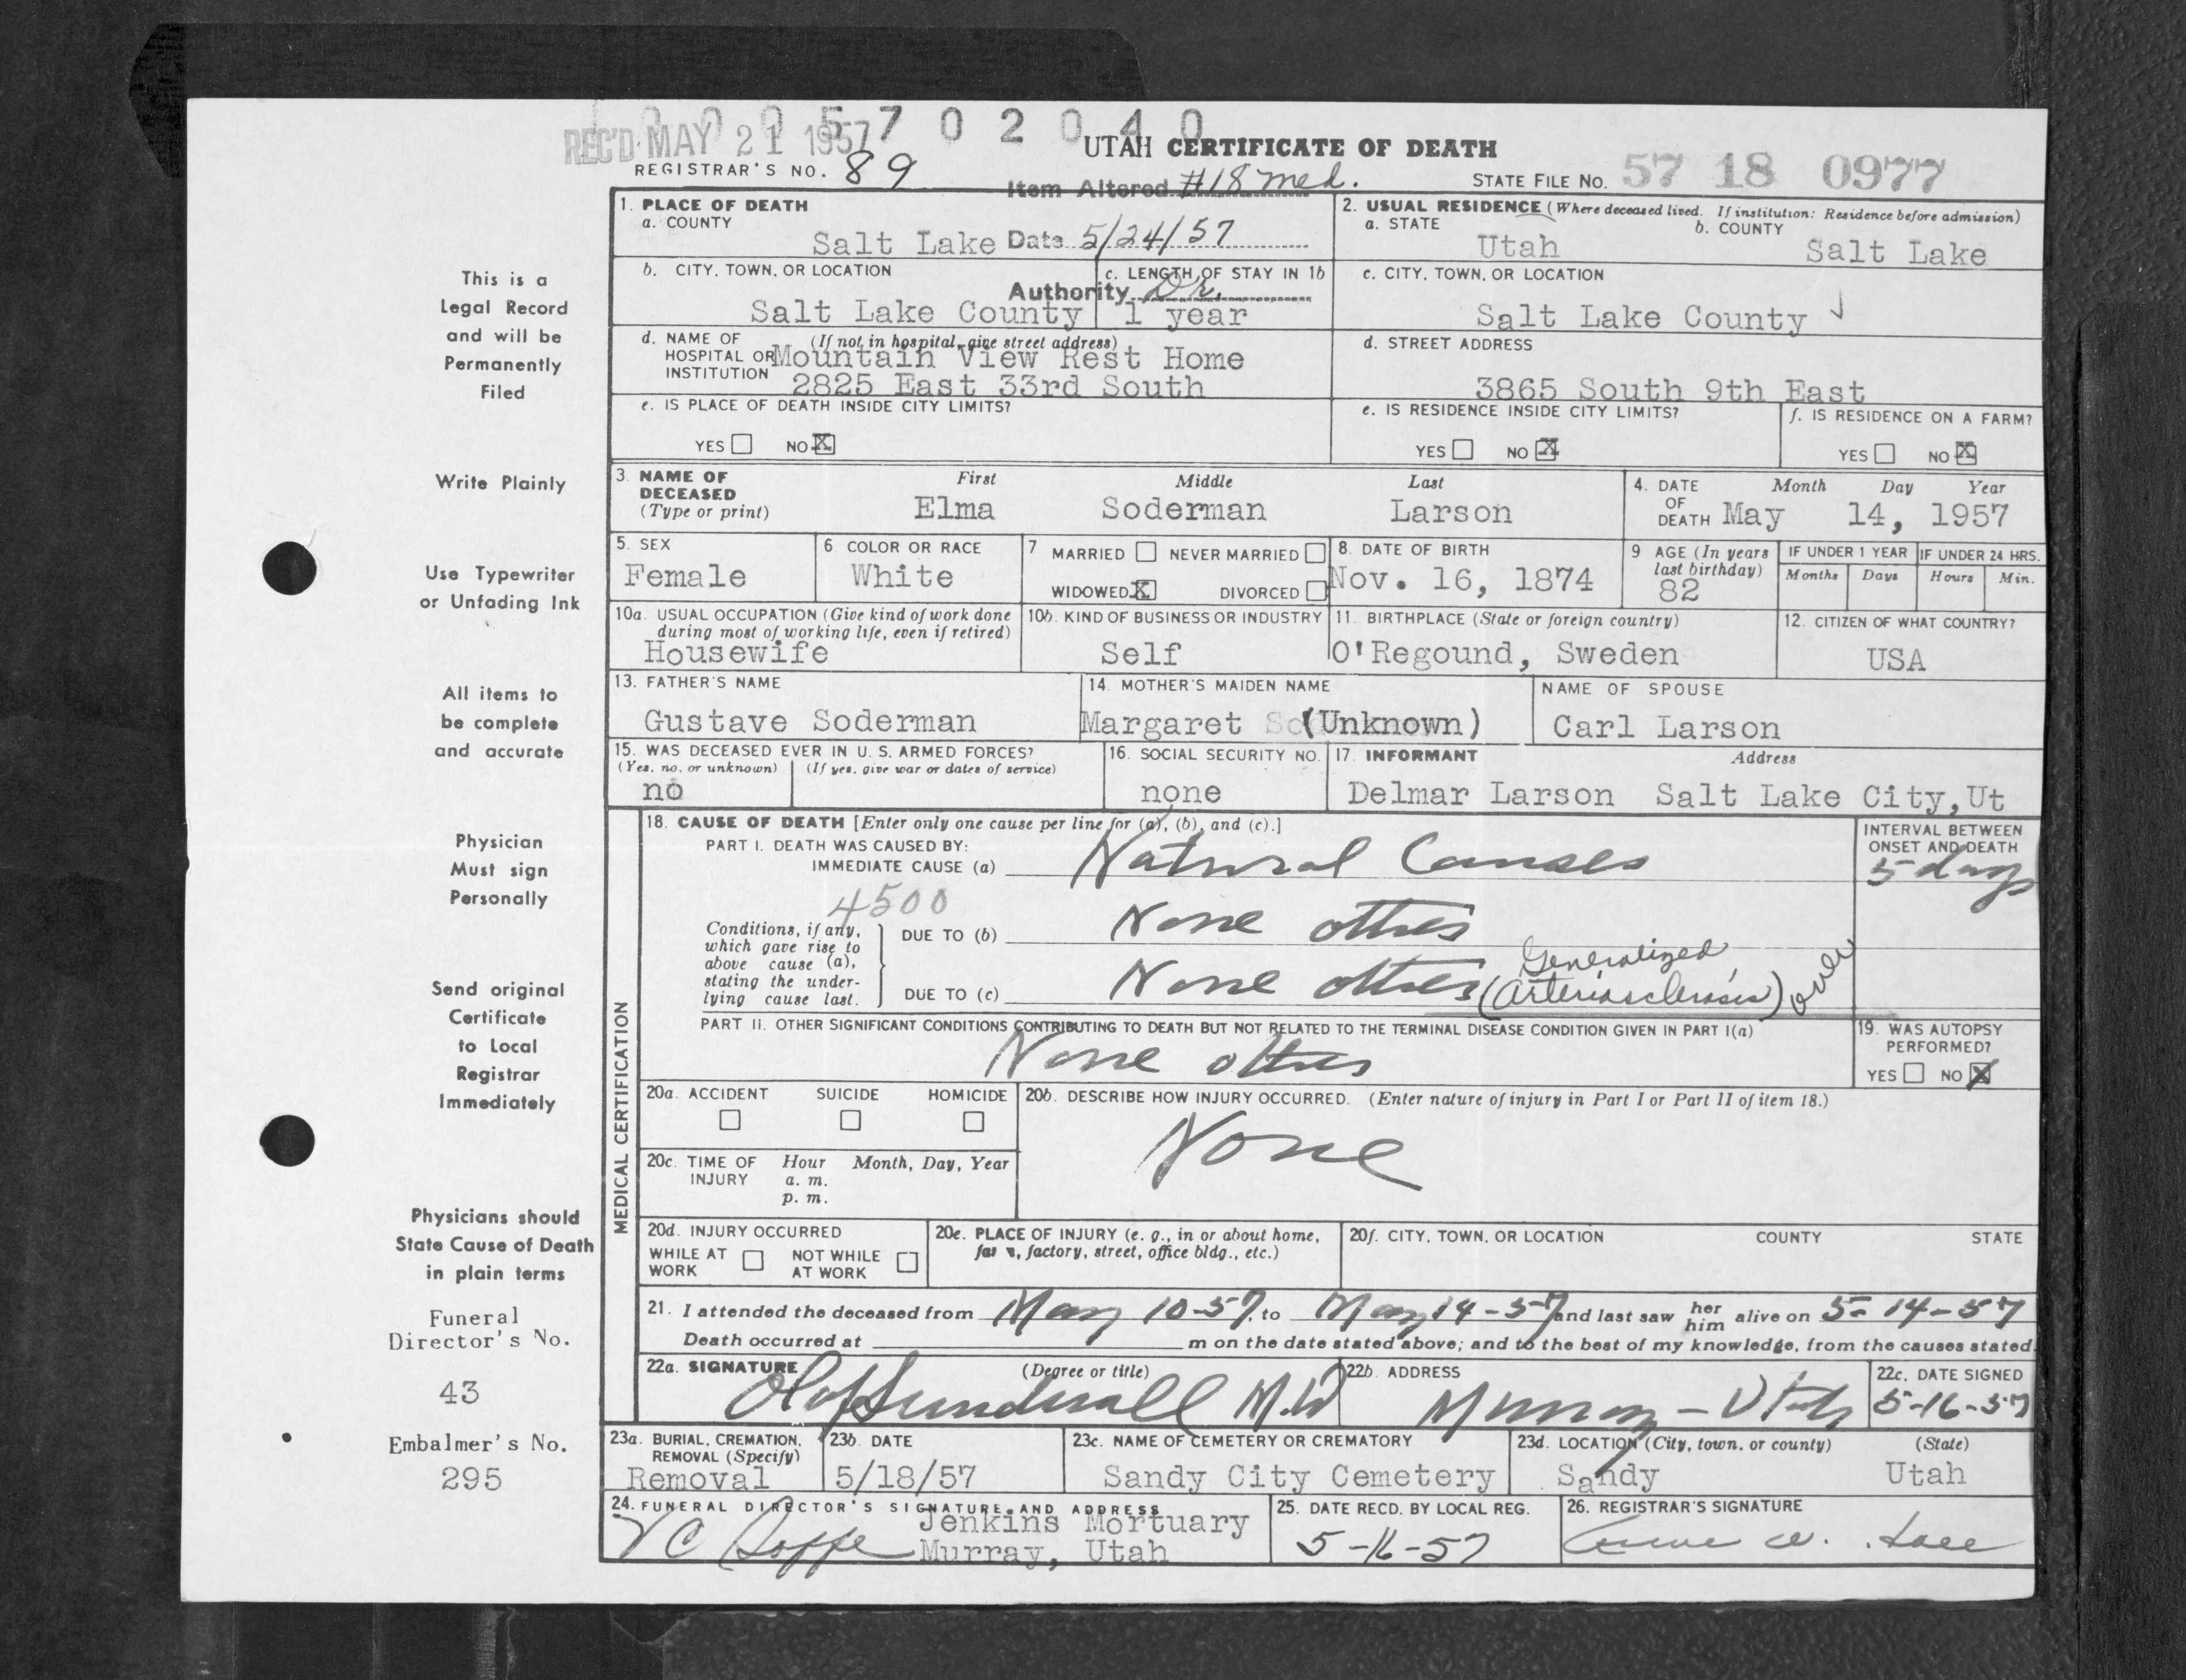 0 0 0 5 7 0 2 0 4 0
REC'D MAY 21 1957
UTAH CERTIFICATE OF DEATH
REGISTRAR'S NO. 89
Item Altered #18 med.
STATE FILE NO. 57 18 0977
1. PLACE OF DEATH
a. COUNTY
Salt Lake
Date 5/24/57
2. USUAL RESIDENCE (Where deceased lived. If institution: Residence before admission)
a. STATE
Utah
b. COUNTY
Salt Lake
b. CITY, TOWN, OR LOCATION
Salt Lake County
c. LENGTH OF STAY IN 1b
Authority Dr.
1 year
c. CITY, TOWN, OR LOCATION
Salt Lake County
d. NAME OF HOSPITAL OR INSTITUTION
(If not in hospital, give street address)
Mountain View Rest Home
2825 East 33rd South
d. STREET ADDRESS
3865 South 9th East
e. IS PLACE OF DEATH INSIDE CITY LIMITS?
YES NO X
e. IS RESIDENCE INSIDE CITY LIMITS?
YES NO X
f. IS RESIDENCE ON A FARM?
YES NO X
3. NAME OF DECEASED
(Type or print)
First Middle Last
Elma Soderman Larson
4. DATE OF DEATH
Month Day Year
May 14, 1957
5. SEX
Female
6 COLOR OR RACE
White
7 MARRIED NEVER MARRIED
WIDOWED X DIVORCED
8. DATE OF BIRTH
Nov. 16, 1874
9 AGE (In years last birthday)
82
IF UNDER 1 YEAR
Months Days
IF UNDER 24 HRS.
Hours Min.
10a. USUAL OCCUPATION (Give kind of work done
during most of working life, even if retired)
Housewife
10b. KIND OF BUSINESS OR INDUSTRY
Self
11. BIRTHPLACE (State or foreign country)
O'Regound, Sweden
12. CITIZEN OF WHAT COUNTRY?
USA
13. FATHER'S NAME
Gustave Soderman
14. MOTHER'S MAIDEN NAME
Margaret (Unknown)
NAME OF SPOUSE
Carl Larson
15. WAS DECEASED EVER IN U. S. ARMED FORCES?
(Yes, no, or unknown) (If yes, give war or dates of service)
no
16. SOCIAL SECURITY NO.
none
17. INFORMANT Address
Delmar Larson Salt Lake City, Ut
MEDICAL CERTIFICATION
18. CAUSE OF DEATH [Enter only one cause per line for (a), (b), and (c).]
PART I. DEATH WAS CAUSED BY:
IMMEDIATE CAUSE (a) Natural Causes
INTERVAL BETWEEN
ONSET AND DEATH
5 days
4500
Conditions, if any,
which gave rise to
above cause (a),
stating the under-
lying cause last.
DUE TO (b) None others
DUE TO (c) None others (Generalized Arteriosclerosis) over
PART II. OTHER SIGNIFICANT CONDITIONS CONTRIBUTING TO DEATH BUT NOT RELATED TO THE TERMINAL DISEASE CONDITION GIVEN IN PART I(a)
None others
19. WAS AUTOPSY
PERFORMED?
YES NO X
20a. ACCIDENT SUICIDE HOMICIDE
20b. DESCRIBE HOW INJURY OCCURRED. (Enter nature of injury in Part I or Part II of item 18.)
None
20c. TIME OF INJURY
Hour Month, Day, Year
a. m.
p. m.
20d. INJURY OCCURRED
WHILE AT WORK
NOT WHILE AT WORK
20e. PLACE OF INJURY (e. g., in or about home,
factory, street, office bldg., etc.)
20f. CITY, TOWN, OR LOCATION COUNTY STATE
21. I attended the deceased from May 10-57, to May 14-57 and last saw her him alive on 5-14-57
Death occurred at m on the date stated above; and to the best of my knowledge, from the causes stated.
22a. SIGNATURE (Degree or title)
Olof Sundwall M.D
22b. ADDRESS
Murray - Utah
22c. DATE SIGNED
5-16-57
23a. BURIAL, CREMATION,
REMOVAL (Specify)
Removal
23b. DATE
5/18/57
23c. NAME OF CEMETERY OR CREMATORY
Sandy City Cemetery
23d. LOCATION (City, town, or county) (State)
Sandy Utah
24. FUNERAL DIRECTOR'S SIGNATURE AND ADDRESS
Jenkins Mortuary
Murray, Utah
25. DATE RECD. BY LOCAL REG.
5-16-57
26. REGISTRAR'S SIGNATURE
This is a
Legal Record
and will be
Permanently
Filed
Write Plainly
Use Typewriter
or Unfading Ink
All items to
be complete
and accurate
Physician
Must sign
Personally
Send original
Certificate
to Local
Registrar
Immediately
Physicians should
State Cause of Death
in plain terms
Funeral
Director's No.
43
Embalmer's No.
295